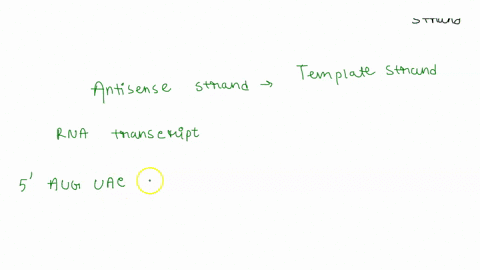 strand
Antisense strand → Template strand
RNA transcript
5' AUG UAC